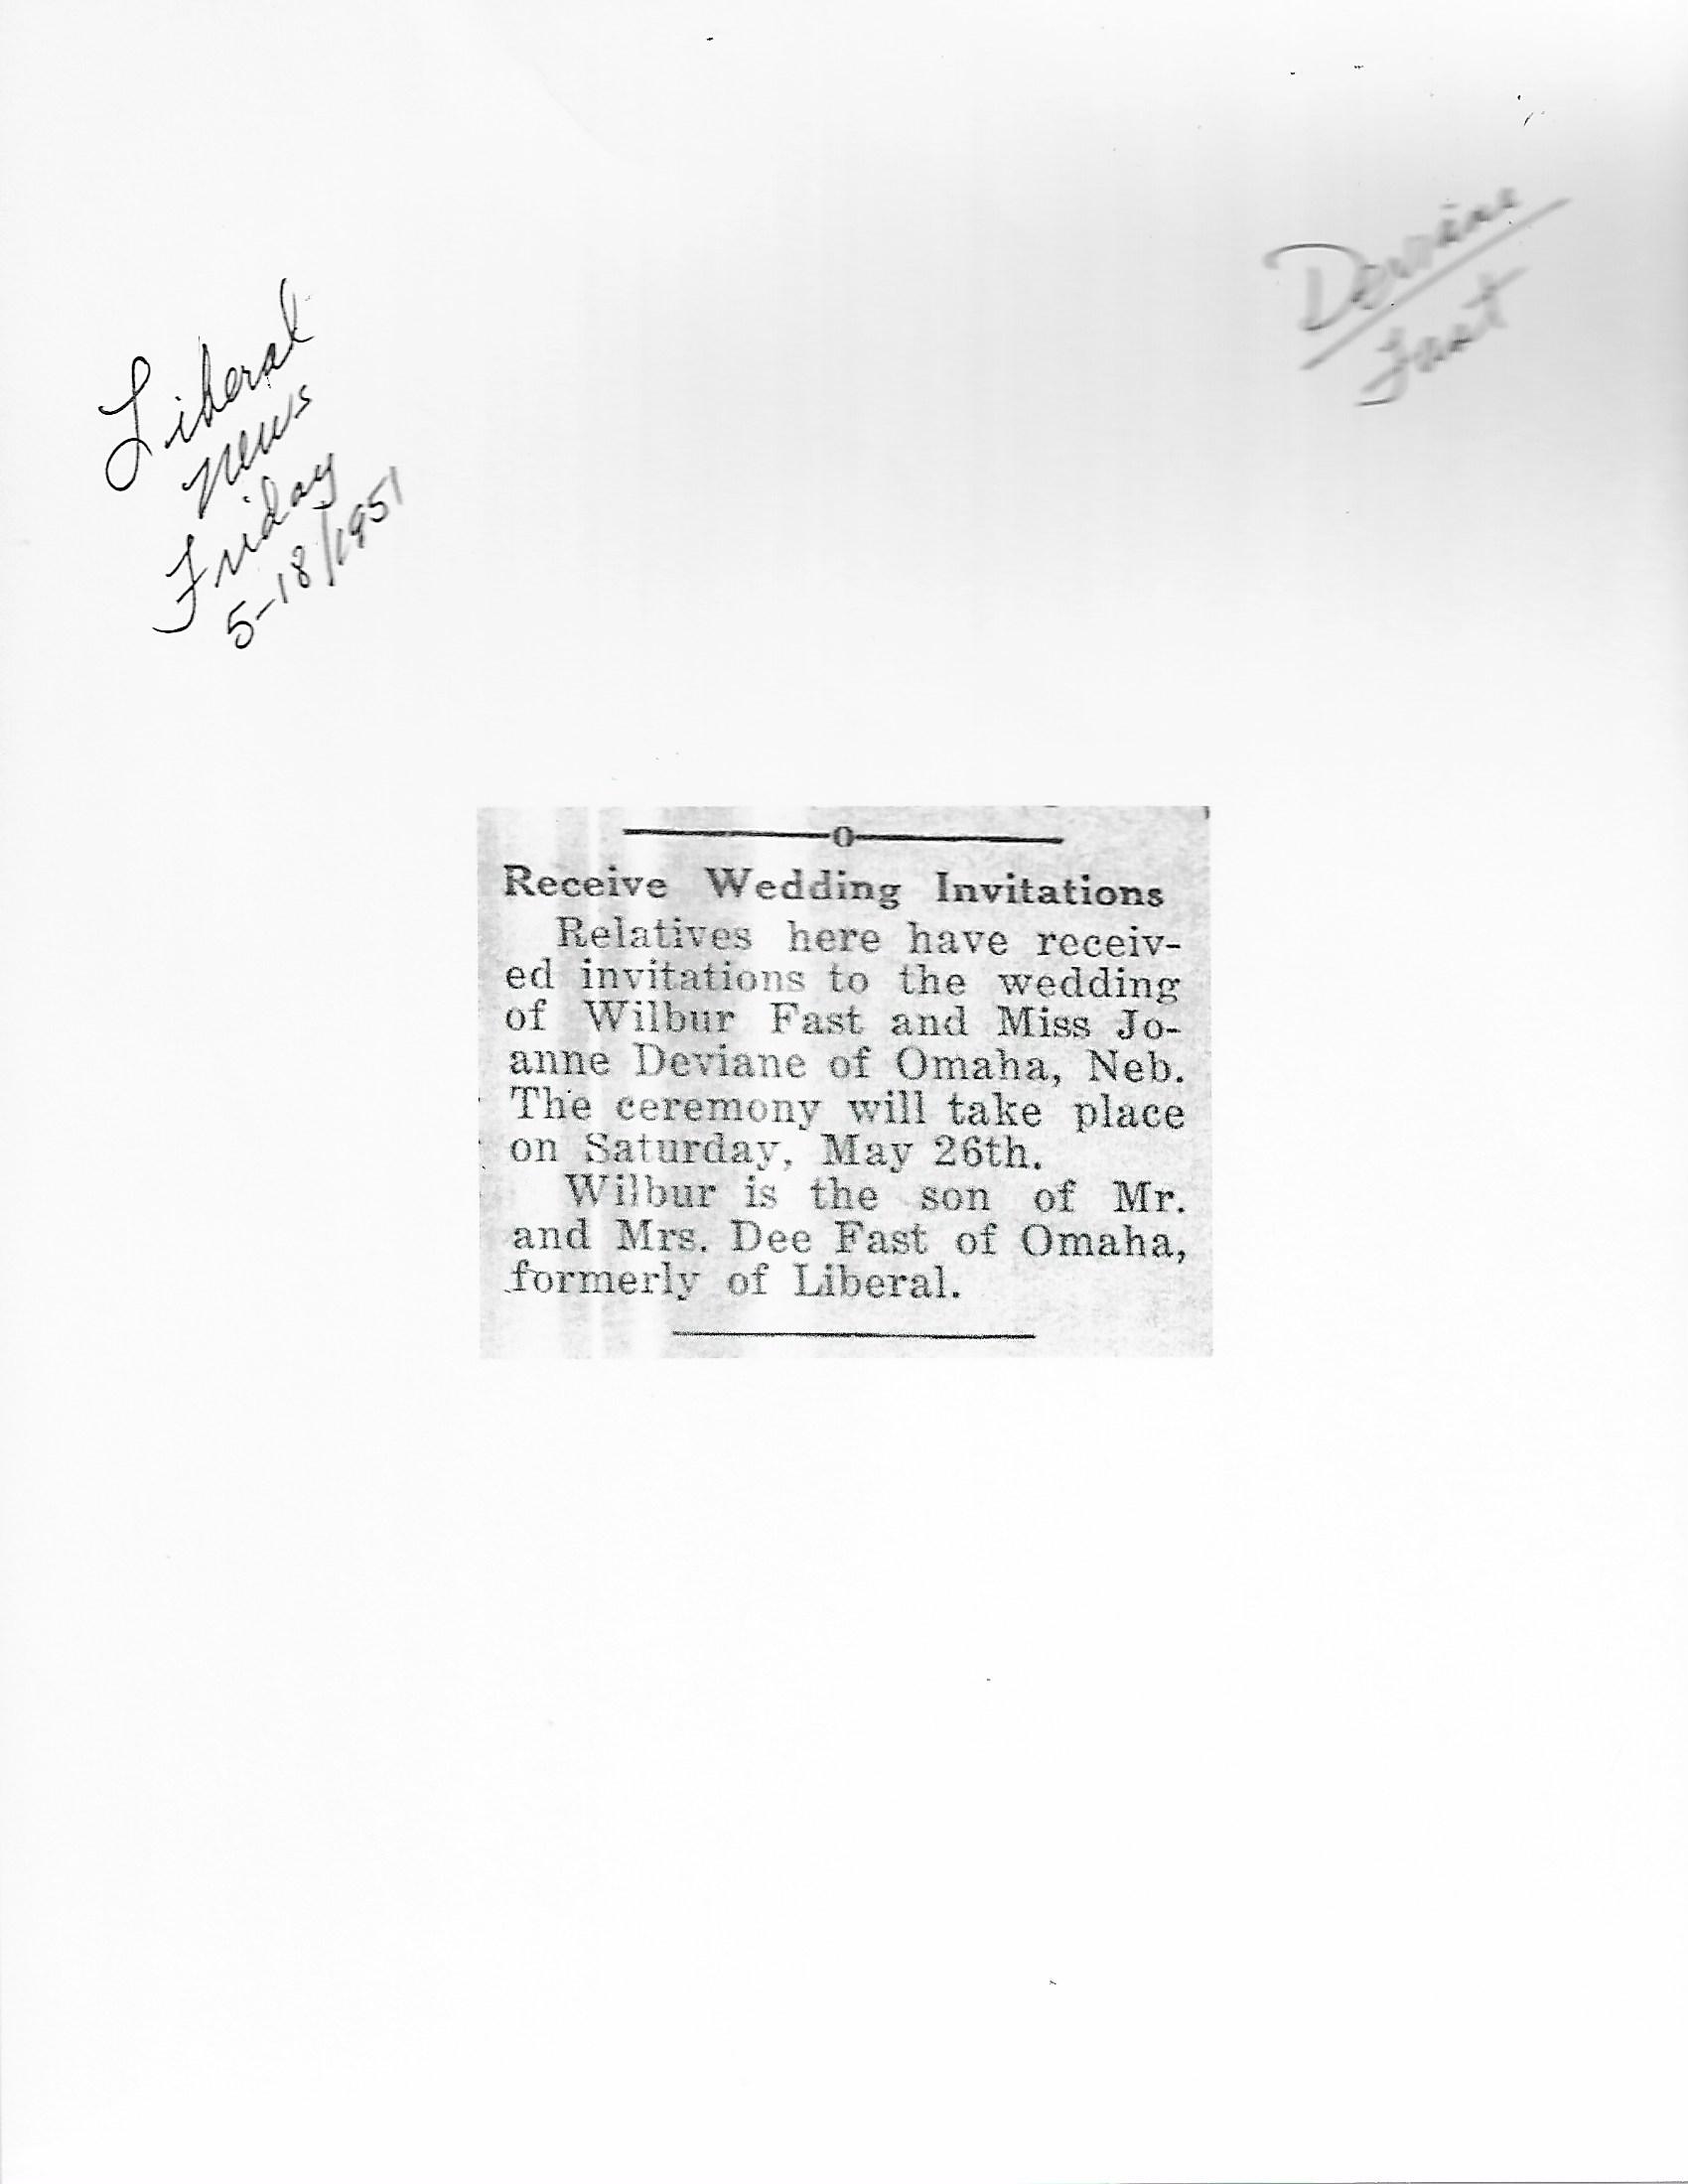 Liberal
News
Friday
5-18/1951
Deviane
Fast
Receive Wedding Invitations
Relatives here have receiv-
ed invitations to the wedding
of Wilbur Fast and Miss Jo-
anne Deviane of Omaha, Neb.
The ceremony will take place
on Saturday, May 26th.
Wilbur is the son of Mr.
and Mrs. Dee Fast of Omaha,
formerly of Liberal.